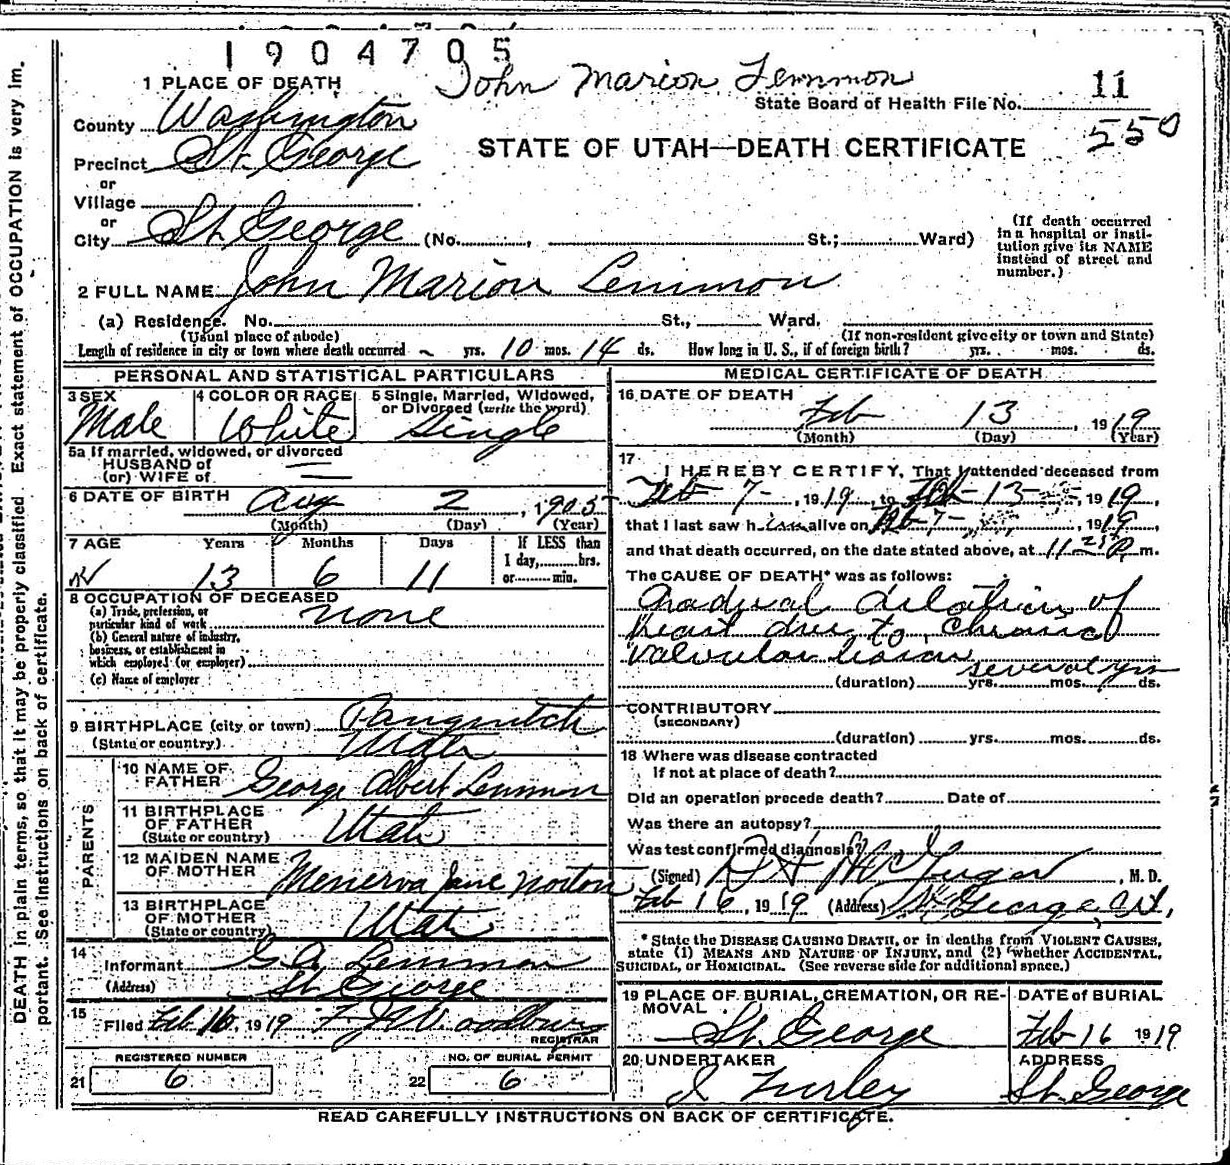 1904705
John Marion Lemmon
11
550
1 PLACE OF DEATH
State Board of Health File No.
County Washington
STATE OF UTAH—DEATH CERTIFICATE
Precinct St. George
or
Village
or
City St. George (No. , St.; Ward)
(If death occurred in a hospital or insti-
tution give its NAME
instead of street and
number.)
2 FULL NAME John Marion Lemmon
(a) Residence. No. St., Ward.
(Usual place of abode) (If non-resident give city or town and State)
Length of residence in city or town where death occurred ~ yrs. 10 mos. 14 ds. How long in U. S., if of foreign birth? yrs. mos. ds.
PERSONAL AND STATISTICAL PARTICULARS
3 SEX
Male
4 COLOR OR RACE
White
5 Single, Married, Widowed,
or Divorced (write the word)
Single
5a If married, widowed, or divorced
HUSBAND of
(or) WIFE of
6 DATE OF BIRTH Aug 2, 1905
(Month) (Day) (Year)
7 AGE Years Months Days
If LESS than
1 day, hrs.
or min.
13 6 11
8 OCCUPATION OF DECEASED
(a) Trade, profession, or
particular kind of work none
(b) General nature of industry,
business, or establishment in
which employed (or employer)
(c) Name of employer
9 BIRTHPLACE (city or town) Panguitch
(State or country) Utah
PARENTS
10 NAME OF
FATHER George Albert Lemmon
11 BIRTHPLACE
OF FATHER
(State or country) Utah
12 MAIDEN NAME
OF MOTHER Menerva Jane Norton
13 BIRTHPLACE
OF MOTHER
(State or country) Utah
14
Informant G A Lemmon
(Address) St George
15
Filed Feb 16, 1919 F J Woodbury
REGISTRAR
REGISTERED NUMBER
21 6
NO. OF BURIAL PERMIT
22 6
MEDICAL CERTIFICATE OF DEATH
16 DATE OF DEATH
Feb 13, 1919
(Month) (Day) (Year)
17
I HEREBY CERTIFY, That I attended deceased from
Feb-7-, 1919, to Feb-13-, 1919,
that I last saw him alive on Feb-7-, 1919,
and that death occurred, on the date stated above, at 11 P m.
The CAUSE OF DEATH* was as follows:
Gradual dilation of
heart due to chronic
valvular lesion
several yrs
(duration) yrs. mos. ds.
CONTRIBUTORY
(SECONDARY)
(duration) yrs. mos. ds.
18 Where was disease contracted
If not at place of death?
Did an operation precede death? Date of
Was there an autopsy?
Was test confirmed diagnosis?
(Signed) , M. D.
Feb 16, 1919 (Address) St George, Ut,
* State the DISEASE CAUSING DEATH, or in deaths from VIOLENT CAUSES,
state (1) MEANS AND NATURE OF INJURY, and (2) whether ACCIDENTAL,
SUICIDAL, or HOMICIDAL. (See reverse side for additional space.)
19 PLACE OF BURIAL, CREMATION, OR RE-
MOVAL
St. George
DATE of BURIAL
Feb 16 1919
20 UNDERTAKER
I Turley
ADDRESS
St. George
READ CAREFULLY INSTRUCTIONS ON BACK OF CERTIFICATE.
DEATH in plain terms, so that it may be properly classified. Exact statement of OCCUPATION is very im-
portant. See instructions on back of certificate.